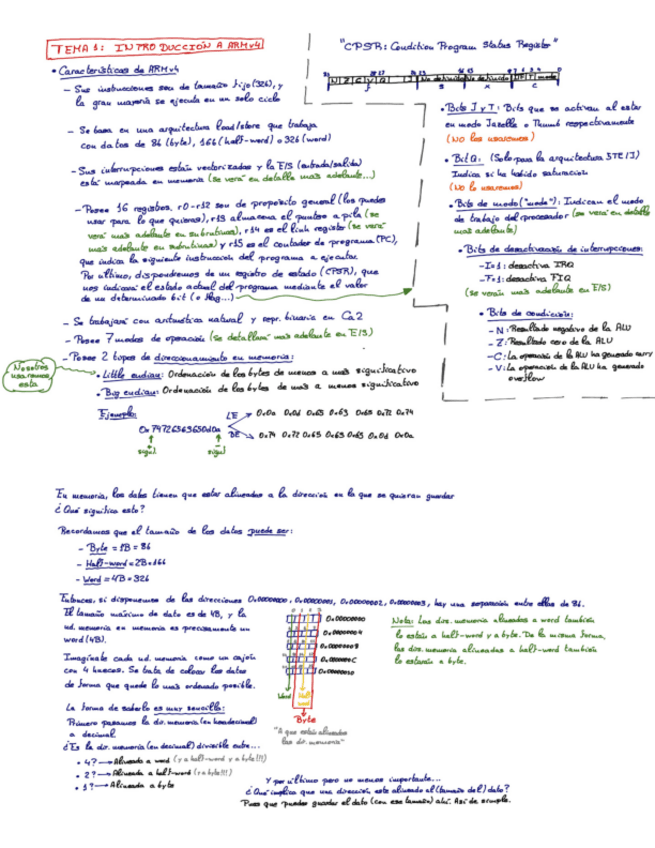 TEMA 1: INTRODUCCIÓN A ARMv4
• Características de ARMv4
– Sus instrucciones son de tamaño fijo (32b), y
la gran mayoría se ejecuta en un solo ciclo
– Se basa en una arquitectura load/store que trabaja
con datos de 8b (byte), 16b (half-word) o 32b (word)
– Sus interrupciones están vectorizadas y la E/S (entrada/salida)
está mapeada en memoria (se verá en detalle más adelante...)
– Posee 16 registros. r0-r12 son de propósito general (los puedes
usar para lo que quieras), r13 almacena el puntero a pila (se
verá más adelante en subrutinas), r14 es el link register (se verá
más adelante en subrutinas) y r15 es el contador de programa (PC),
que indica la siguiente instrucción del programa a ejecutar.
Por último, dispondremos de un registro de estado (CPSR), que
nos indicará el estado actual del programa mediante el valor
de un determinado bit (o flag...)
– Se trabajará con aritmética natural y repr. binaria en Ca2
– Posee 7 modos de operación (se detallan más adelante en E/S)
– Posee 2 tipos de direccionamiento en memoria:
Nosotros
usaremos
esta
• Little endian: Ordenación de los bytes de menos a más significativo
• Big endian: Ordenación de los bytes de más a menos significativo
Ejemplo:
0x74726563650d0a
LE
0x0a 0x0d 0x65 0x63 0x65 0x72 0x74
BE
0x74 0x72 0x65 0x63 0x65 0x0d 0x0a
"CPSR: Condition Program Status Register"
N Z C V Q J No definido No definido I F T mode
F S X C
• Bits J y T: Bits que se activan al estar
en modo Jazelle o Thumb respectivamente
(NO los usaremos)
• Bit Q: (Solo para la arquitectura 5TE/J)
Indica si ha habido saturación
(NO lo usaremos)
• Bits de modo ("mode"): Indican el modo
de trabajo del procesador (se verá en detalle
más adelante)
• Bits de desactivación de interrupciones:
– I=1: desactiva IRQ
– F=1: desactiva FIQ
(se verán más adelante en E/S)
• Bits de condición:
– N: Resultado negativo de la ALU
– Z: Resultado cero de la ALU
– C: La operación de la ALU ha generado carry
– V: La operación de la ALU ha generado
overflow
En memoria, los datos tienen que estar alineados a la dirección en la que se quieran guardar
¿Qué significa esto?
Recordamos que el tamaño de los datos puede ser:
– Byte = 1B = 8b
– Half-word = 2B = 16b
– Word = 4B = 32b
Entonces, si disponemos de las direcciones 0x00000000, 0x00000001, 0x00000002, 0x00000003, hay una separación entre ellas de 8b.
El tamaño máximo de dato es de 4B, y la
ud. memoria en memoria es precisamente un
word (4B).
Imagínate cada ud. memoria como un cajón
con 4 huecos. Se trata de colocar los datos
de forma que quede lo más ordenado posible.
La forma de saberlo es muy sencilla:
Primero pasamos la dir. memoria (en hexadecimal)
a decimal
¿Es la dir. memoria (en decimal) divisible entre...
• 4? → Alineada a word (y a half-word y a byte!!!)
• 2? → Alineada a half-word (y a byte!!!)
• 1? → Alineada a byte
0x00000000
0x00000004
0x00000008
0x0000000C
0x00000010
Word
Half-
word
Byte
"A que están alineadas
las dir. memoria"
Nota: Las dir. memoria alineadas a word también
lo están a half-word y a byte. De la misma forma,
las dir. memoria alineadas a half-word también
lo estarán a byte.
Y por último pero no menos importante...
¿Qué implica que una dirección esté alineada al (tamaño del) dato?
Pues que puedes guardar el dato (con ese tamaño) ahí. Así de simple.